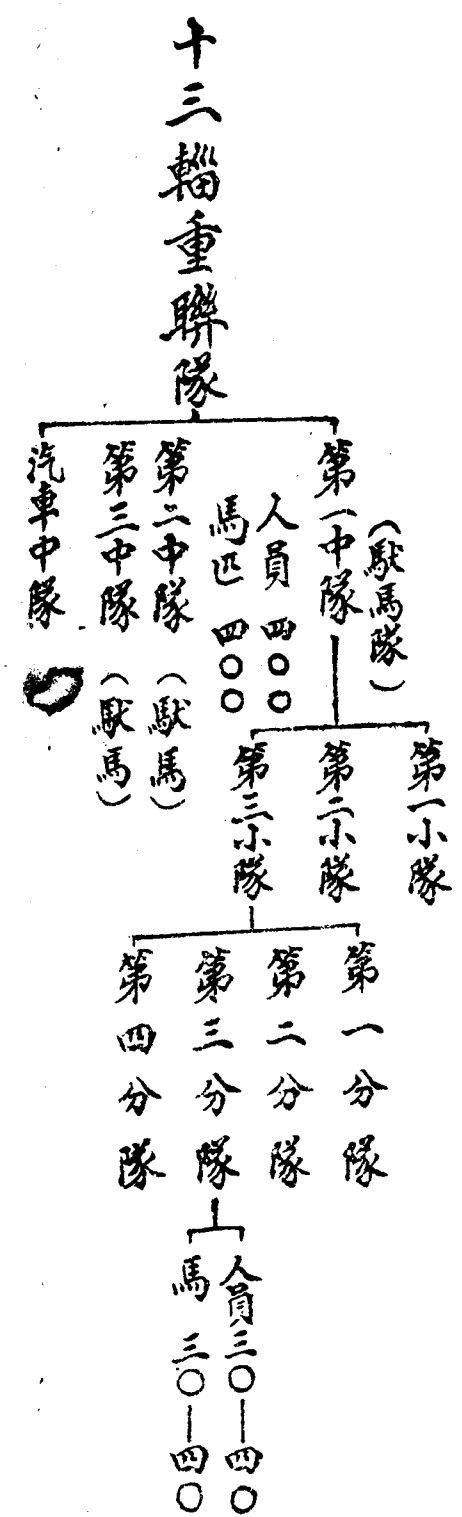 十三輜重聯隊
第一中隊
(馱馬隊)
人員 四〇〇
馬匹 四〇〇
第二中隊 (馱馬)
第三中隊 (馱馬)
汽車中隊
第一小隊
第二小隊
第三小隊
第一分隊
第二分隊
第三分隊
第四分隊
人員三〇—四〇
馬 三〇—四〇